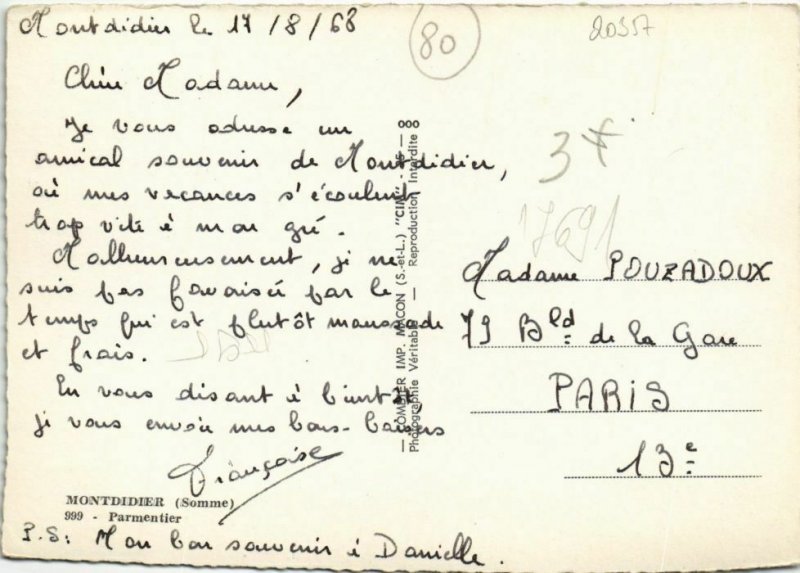 Montdidier le 17/8/68
80
20357
Chère Madame,
Je vous adresse un
amical souvenir de Montdidier,
où mes vacances s'écoulent
trop vite à mon gré.
Malheureusement, je ne
suis pas favorisée par le
temps qui est plutôt maussade
et frais.
En vous disant à bientôt,
je vous envoie mes bons baisers
Françoise
MONTDIDIER (Somme)
999 - Parmentier
P.S: Mon bon souvenir à Danielle.
— COMBIER IMP. MACON (S.-et-L.) "CIM" —
Photographie Véritable — Reproduction Interdite
3F
17691
Madame POUZADOUX
79 Bld de la Gare
PARIS
13e